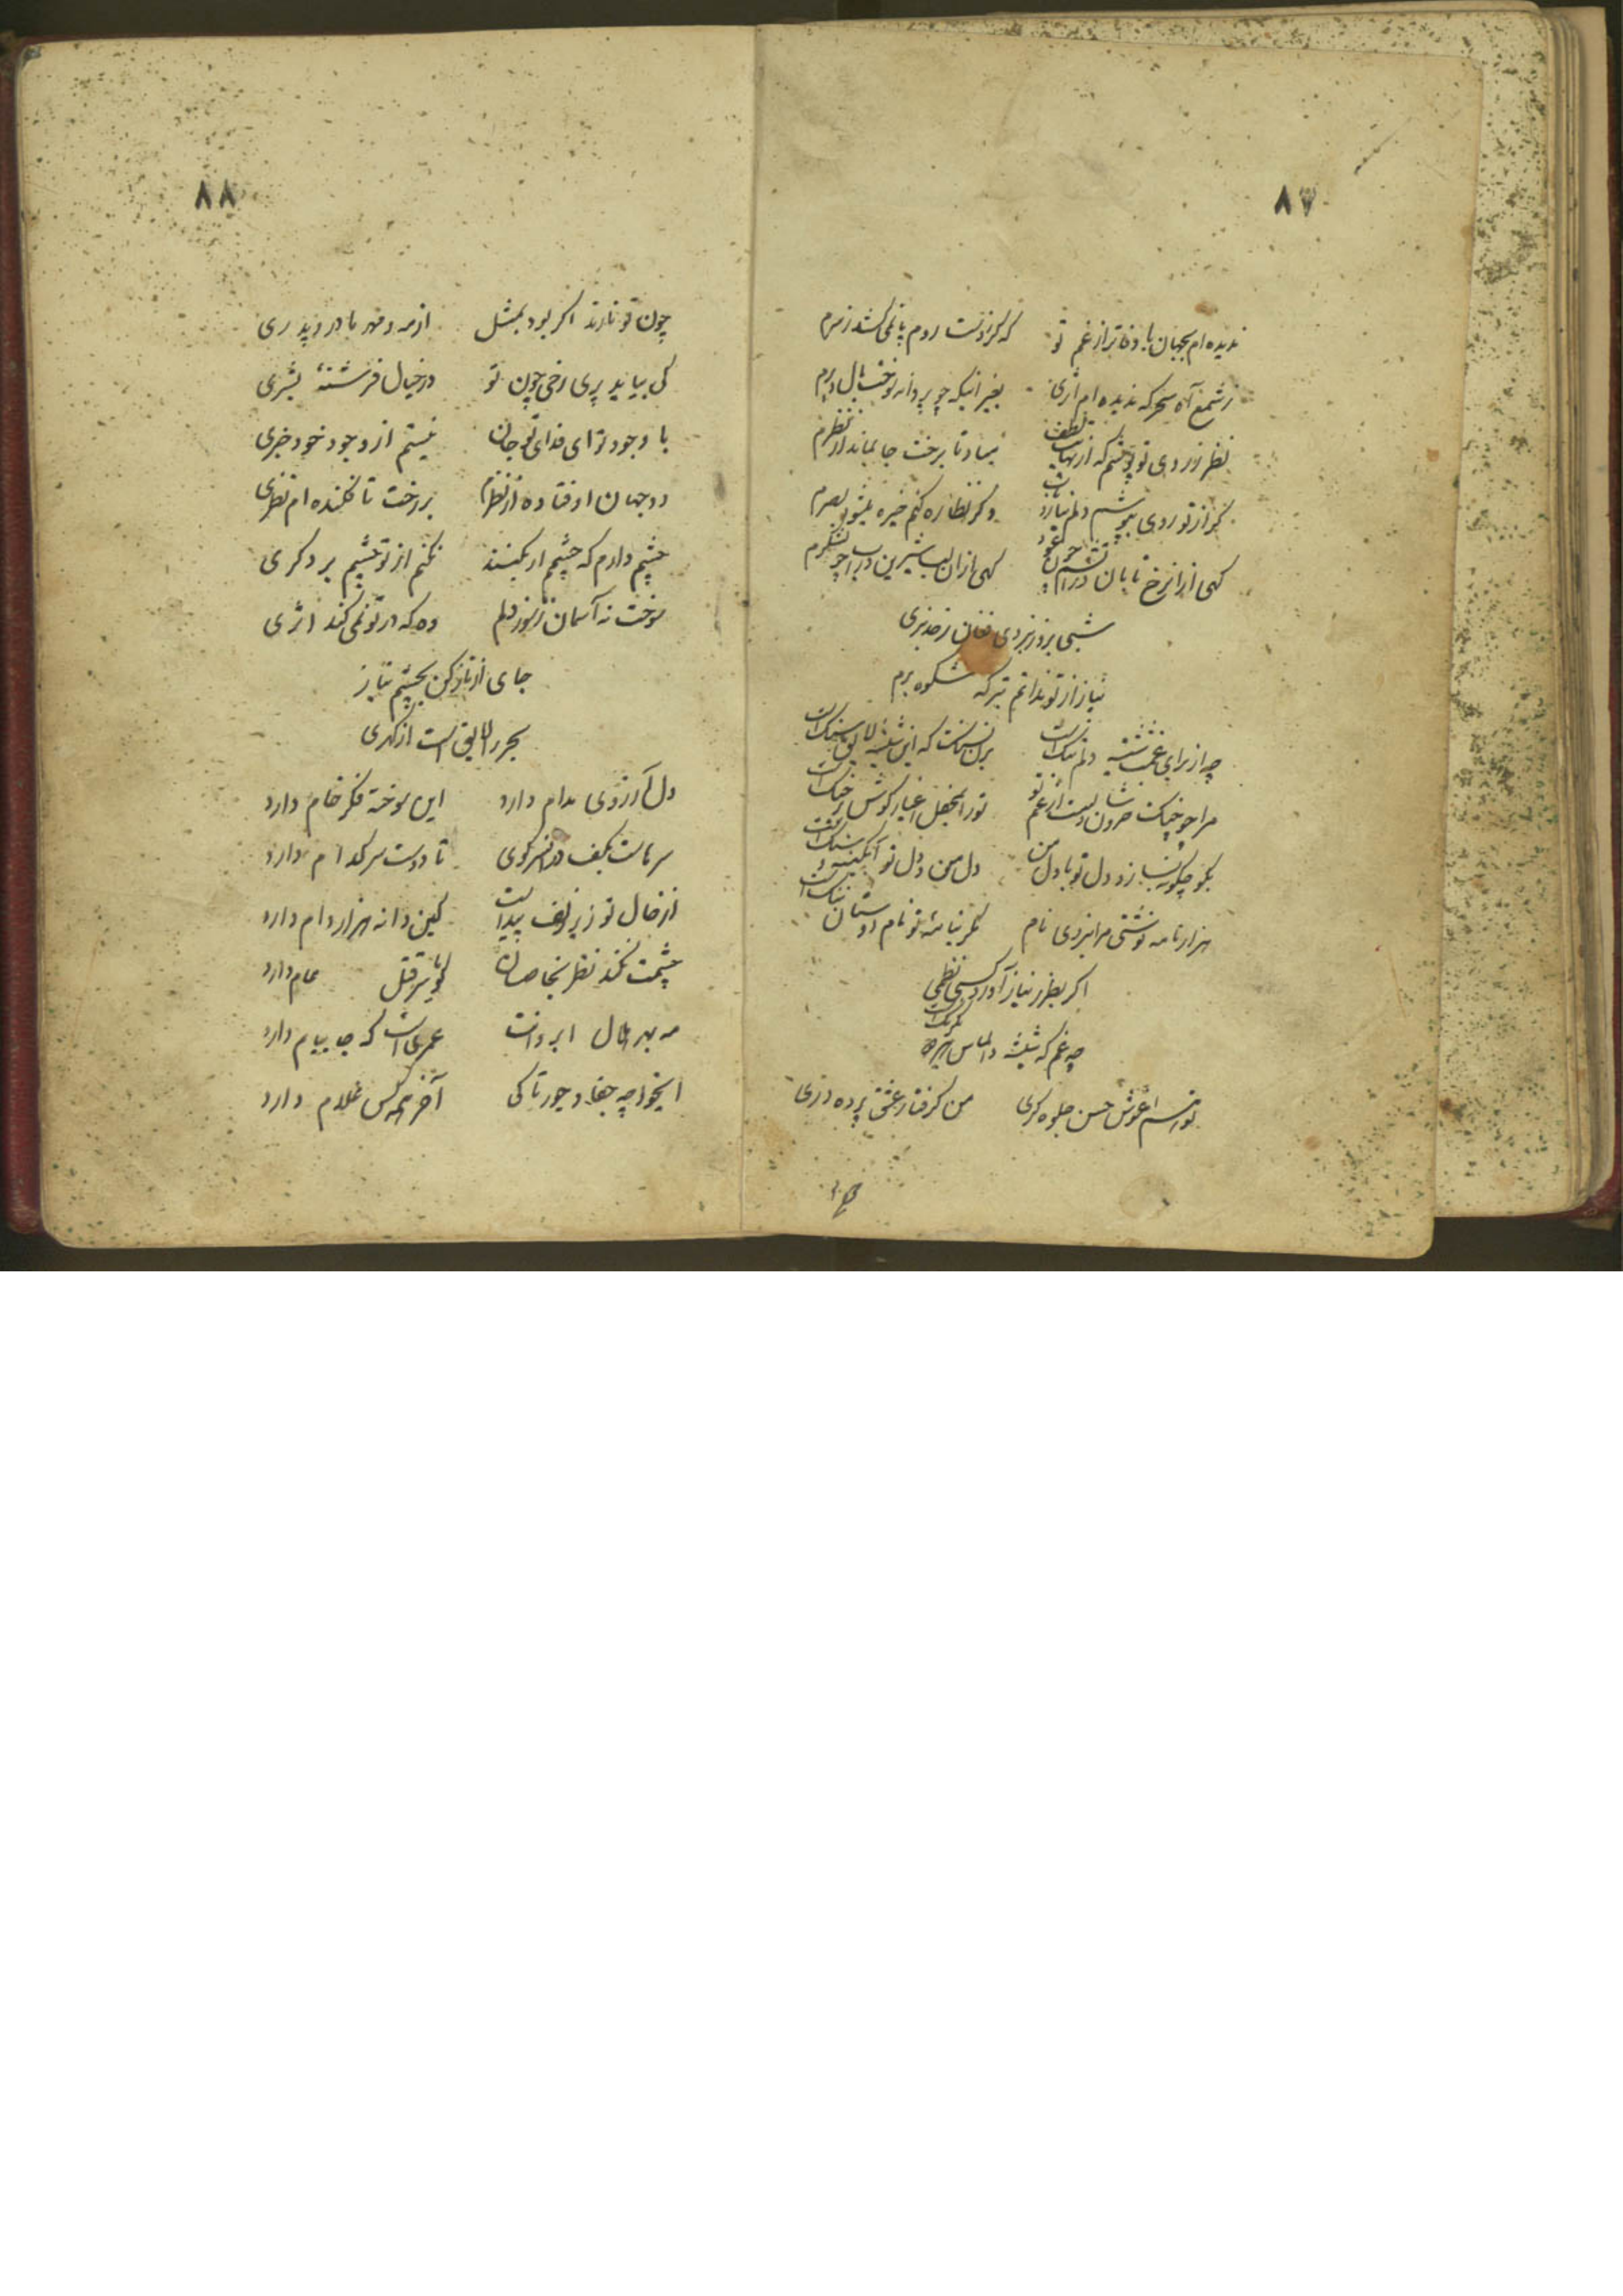 ۸۷
ندیده‌ام بجهان باوفاتر از غم تو که گر ز دست روم پا نمی‌کشد ز سرم
ز شمع آه سحر که ندیده‌ام اثری بغیر اینکه چو پروانه سوخت بال و پرم
نظر ز روی تو پوشم که از نهایت لطف مباد تا برخت جا بماند از نظرم
گر از تو روی بپوشم دلم نیارد تاب وگر نظاره کنم خیره میشود بصرم
گهی از آن رخ تابان در آتشم چون عود گهی از آن لب شیرین در آب چو شکرم
شبی بروز نبردی فغان ز
نیاز از تو ندانم بر که شکوه برم
چه از برای غمت شیشه دلم تنگ است بر آن شکست که این شیشه لایق سنگ است
مرا چو چنگ خروشان دلیست از غم تو تو را بمحفل اغیار گوش بر چنگ است
بگو چگونه بسازد دل تو با دل من دل من و دل تو آبگینه و سنگ است
هزار نامه نوشتی مرا نبردی نام مگر بنامه تو نام دوستان ننگ است
اگر بطرز نیاز آورد کسی نظمی
چه غم که شیشه و الماس
من گرفتار عشق پرده دری
۸۸
چون تو نازند اگر بود بمثل از مه و مهر مادر و پدری
کی بیاید پری رخی چون تو در خیال فرشتهٔ بشری
با وجود تو ای فدای تو جان نیستم از وجود خود خبری
دو جهان اوفتاده از نظرم بر رخت تا فکنده‌ام نظری
چشم دارم که چشمم ار بکنند نکنم از تو چشم بر دگری
سوخت نه آسمان ز سوز دلم وه که در تو نمیکند اثری
جای از ناز کن بچشم نیاز
بحر را لایق است از گهری
دل آرزوی مدام دارد این سوخته فکر خام دارد
سرماست بکف در سر کوی تا دوست سر کدام دارد
از خال تو زیر زلف پیداست کین دانه هزار دام دارد
چشمت نکند نظر بخاصان گویا سر قتل عام دارد
مه بهر هلال ابروانت عمریست که جا ببام دارد
ایخواجه جفا و جور تا کی آخر همه کس غلام دارد